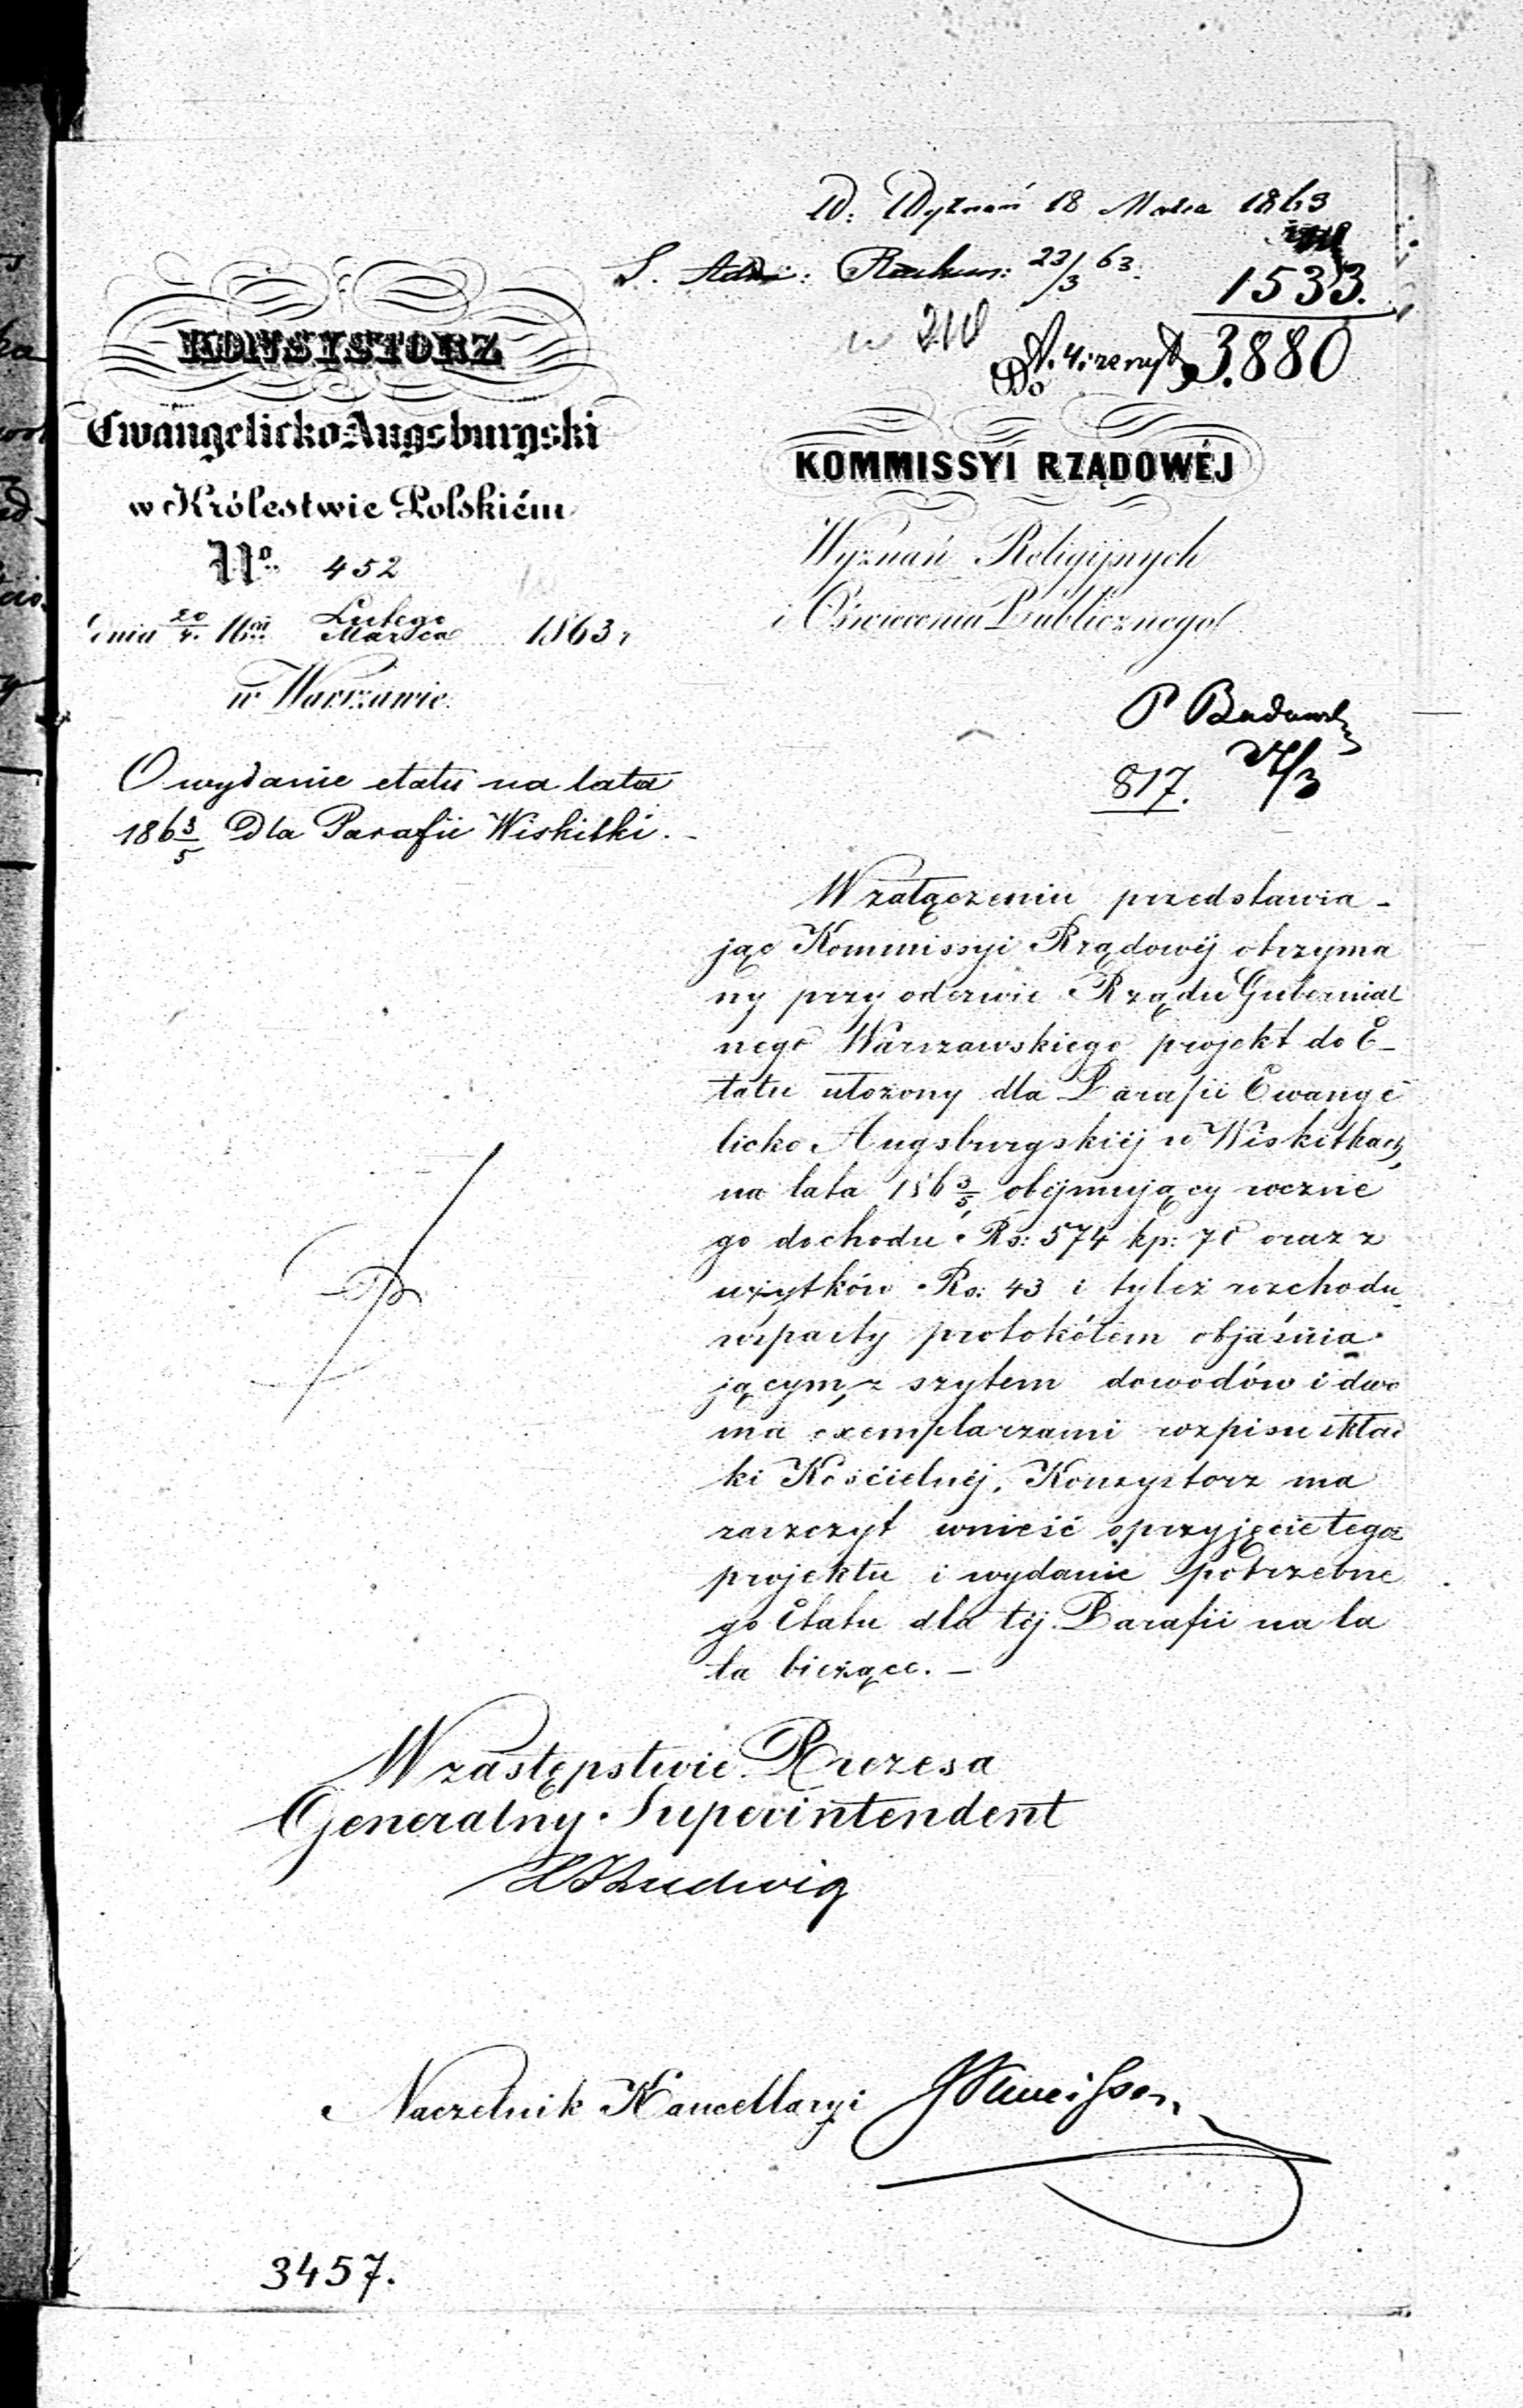 W. Wyznań 18 Marca 1863
S. Adm: Rachun: 23/3 63.
1533.
3.880
KONSYSTORZ
Ewangelicko-Augsburgski
w Królestwie Polskiém
No. 452
dnia 20/4. Lutego/Marca 1863 r
w Warszawie.
O wydanie etatu na lata
186 3/5 Dla Parafii Wiskitki. -
Do
KOMMISSYI RZĄDOWÉJ
Wyznań Religijnych
i Oświecenia Publicznego
P
817. 24/3
W załączeniu przedstawia-
jąc Kommissyi Rządowéj otrzyma
ny przy odezwie Rządu Gubernial
nego Warszawskiego projekt do E-
tatu ułożony dla Parafii Ewange
licko Augsburgskiéj w Wiskitkach,
na lata 186 3/5, obejmujący roczne
go dochodu Rs: 574 kp: 70 oraz z
użytków Rs: 43 i tyleż rozchodu
wsparty protokółem objaśnia-
jącym, z szytem dowodów i dwo
ma exemplarzami rozpisu skład
ki Kościelnéj, Konsystorz ma
zaszczyt wnieść o przyjęcie tegoż
projektu i wydanie potrzebne
go Etatu dla téj Parafii na la
ta bieżące. -
W zastępstwie Prezesa
Generalny Superintendent
Ludwig
Naczelnik Kancellaryi
3457.